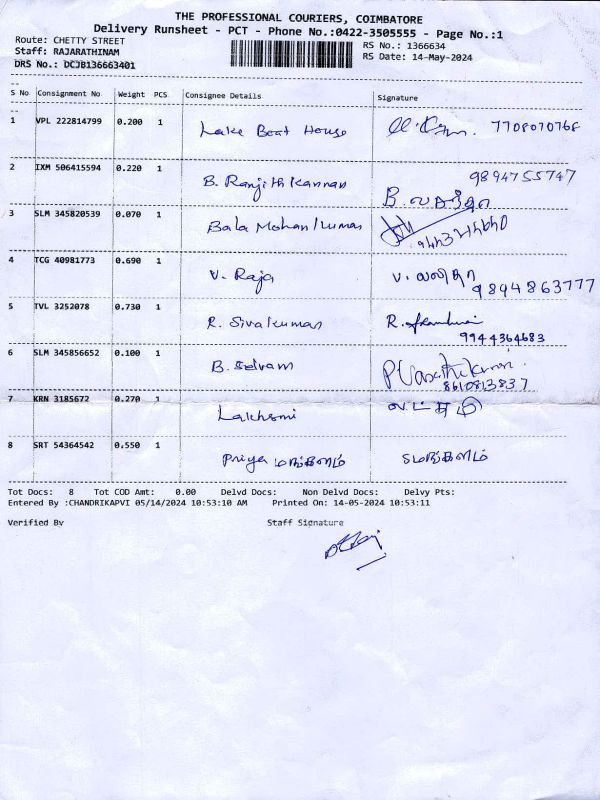 THE PROFESSIONAL COURIERS, COIMBATORE
Delivery Runsheet - PCT - Phone No.:0422-3505555 - Page No.:1
Route: CHETTY STREET
Staff: RAJARATHINAM
DRS No.: DCJB136663401
RS No.: 1366634
RS Date: 14-May-2024
S No Consignment No Weight PCS Consignee Details Signature
1 VPL 222814799 0.200 1 Lake Boat House 7708070768
2 IXM 506415594 0.220 1 B. Ranjith Kannan 9894755747
3 SLM 345820539 0.070 1 Bala Mohan Kumar
4 TCG 40981773 0.690 1 V. Raja V. வனிதா 9894863777
5 TVL 3252078 0.730 1 R. Sivakumar R. 9944364683
6 SLM 345856652 0.100 1 B. Selvam P Vasanthikumari 8610813837
7 KRN 3185672 0.270 1 Lakhsmi
8 SRT 54364542 0.550 1 Priya மங்களம் மங்களம்
Tot Docs: 8 Tot COD Amt: 0.00 Delvd Docs: Non Delvd Docs: Delvy Pts:
Entered By :CHANDRIKAPVI 05/14/2024 10:53:10 AM Printed On: 14-05-2024 10:53:11
Verified By Staff Signature